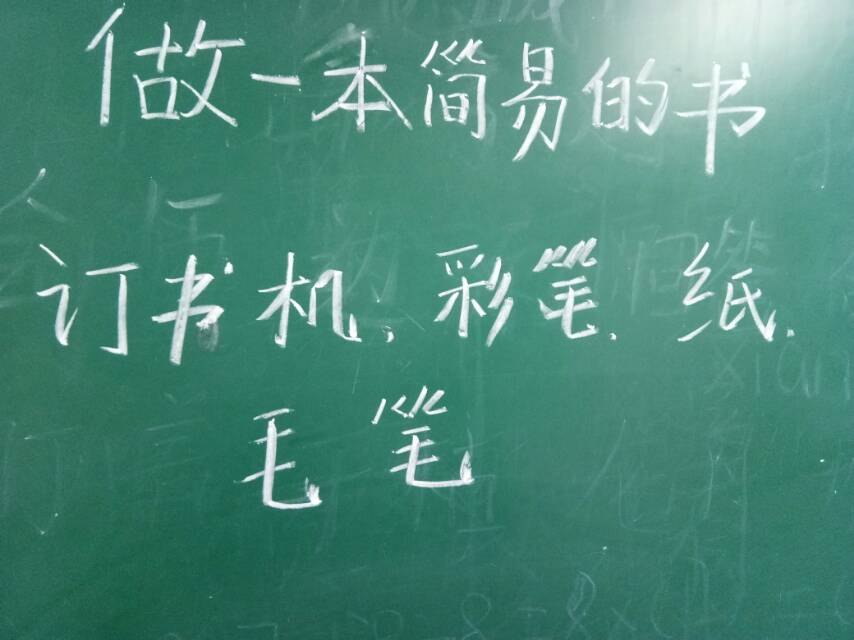 做一本简易的书
订书机、彩笔、纸、
毛笔